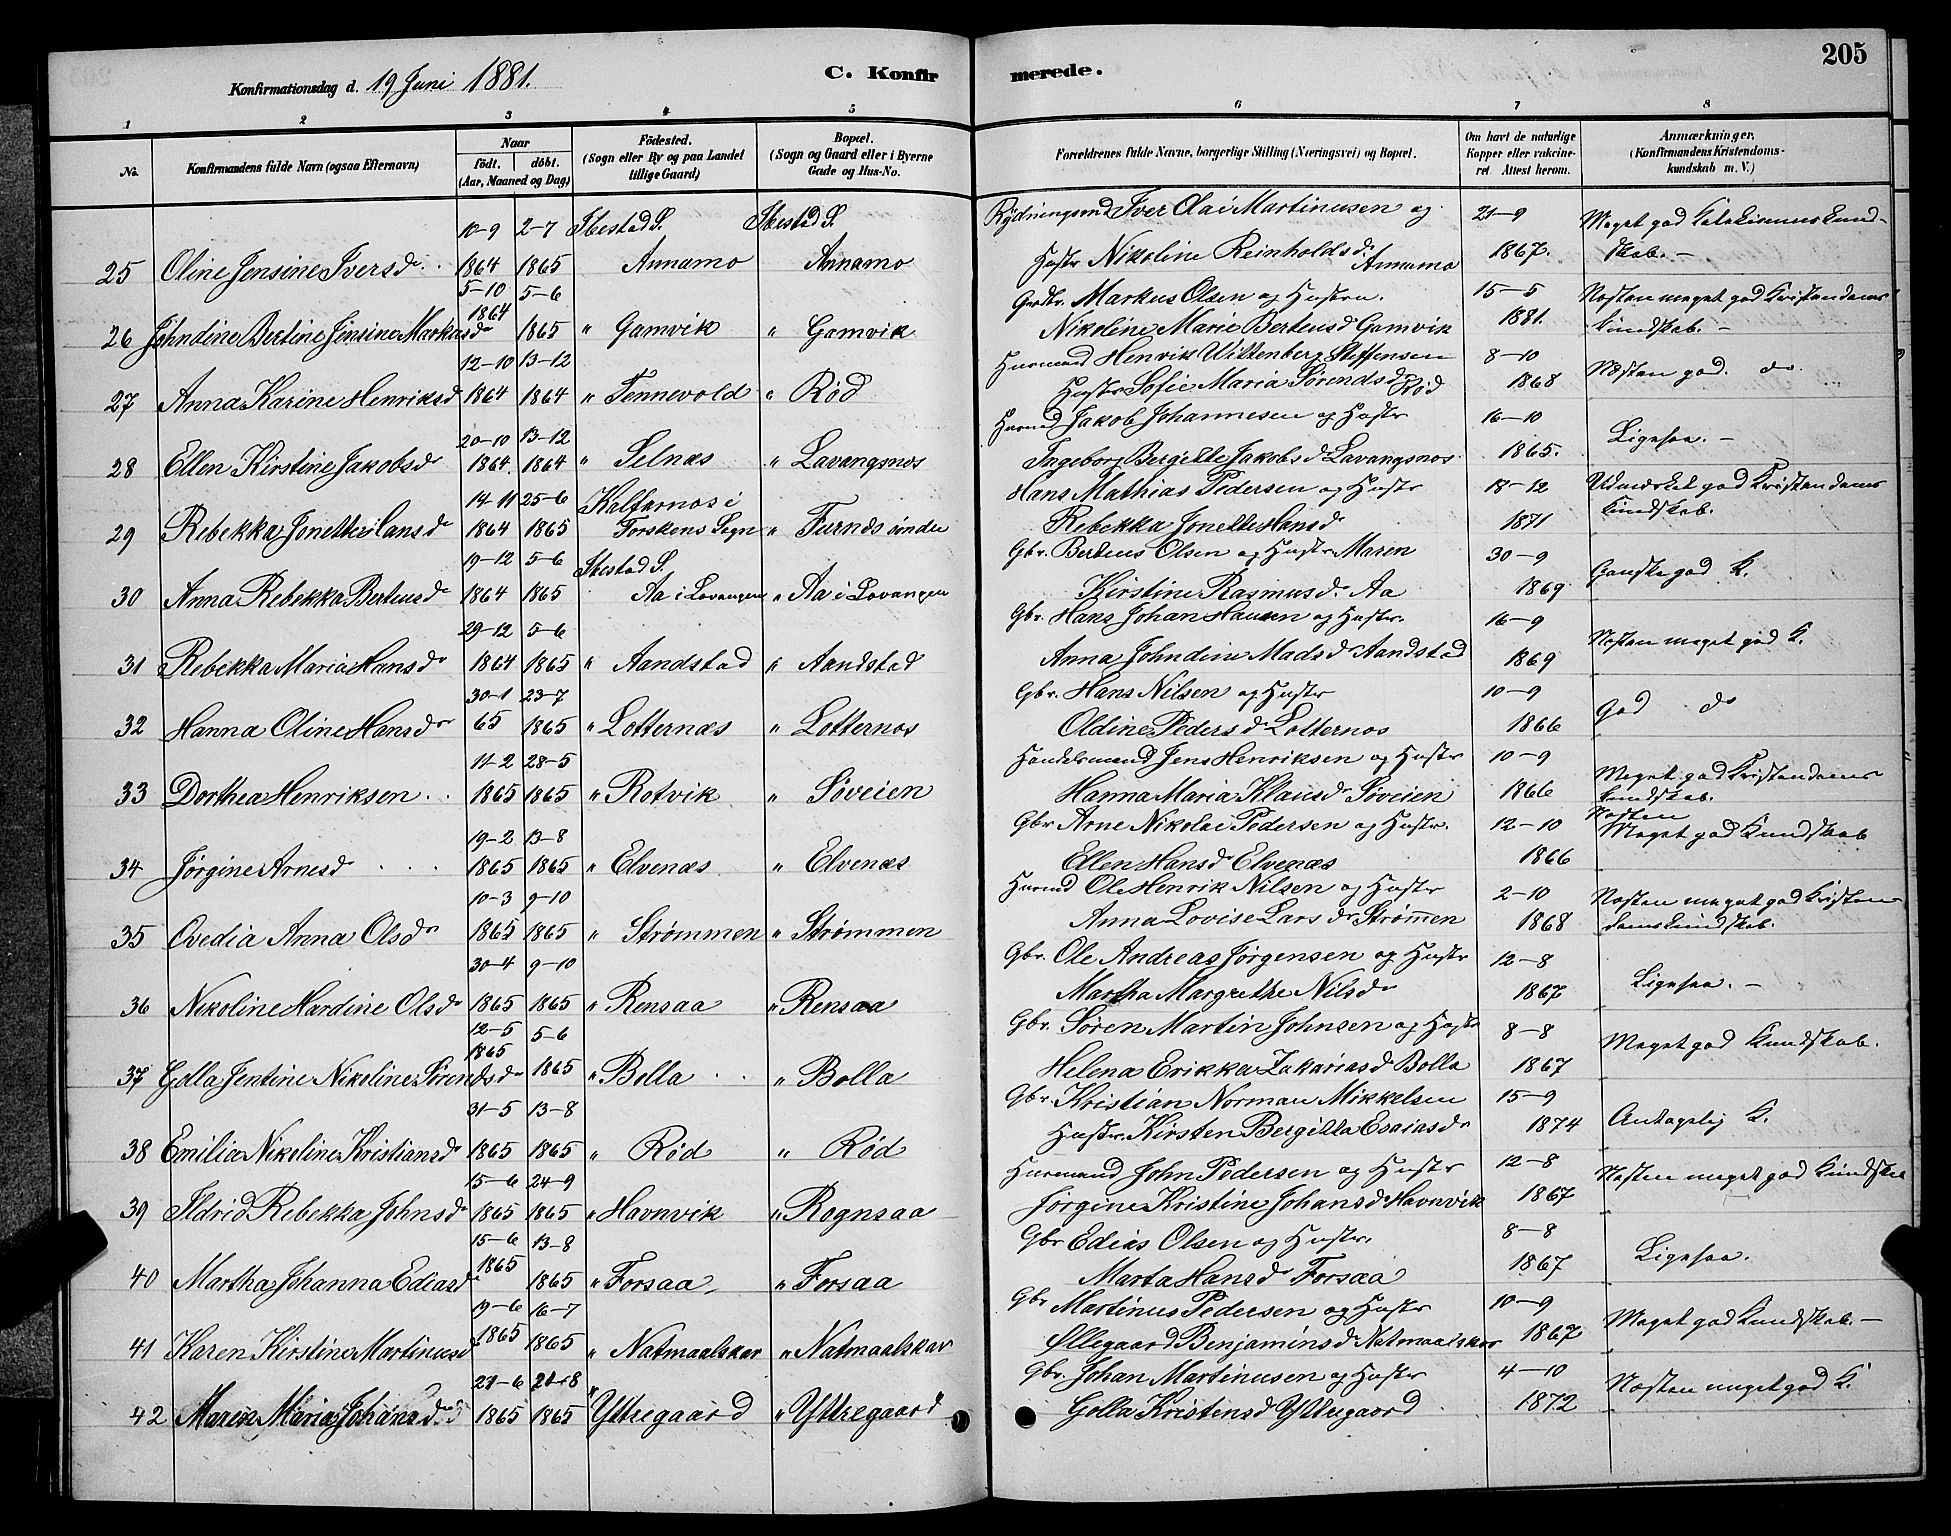 205
Konfirmationsdag d. 19 Juni 1881. C. Konfirmerede.
1 2 3 4 5 6 7 8
No. Konfirmandens fulde Navn (ogsaa Efternavn) Naar født. døbt. (Aar, Maaned og Dag) Fødested. (Sogn eller By og paa Landet tillige Gaard) Bopæl. (Sogn og Gaard eller i Byerne Gade og Hus-No. Forældrenes fulde Navne, borgerlige Stilling (Næringsvei) og Bopæl. Om havt de naturlige Kopper eller vakcineret Attest herom. Anmærkninger. (Konfirmandens Kristendomskundskab m. V.)
10-9 2-7 Ibestad S. Ibestad S. Rydningsmd Iver Olai Martinusen og 21-9 Meget god Katekismuskund-
25 Oline Jensine Iversdr 1864 1865 Annamo Annamo Hustr Nikoline Reinholdsdr Annamo 1867. skab. -
5-10 5-6 Gbr. Markus Olsen og Hustru. 15-5 Næsten meget god Kristendoms
26 Johndine Bertine Jensine Markusdr 1864 1865 " Gamvik " Gamvik Nikoline Marie Berteusd Gamvik 1881. kundskab. -
12-10 13-12 Husmand Henrik Wittenberg Steffensen 8-10
27 Anna Karine Henriksd 1864 1864 " Tennevold " Rød Hustr Sofie Maria Sørensdr Rød 1868 Næsten god. do.
20-10 13-12 Husmd Jakob Johannesen og Hustr 16-10
28 Ellen Kirstine Jakobsdr 1864. 1864 " Selnæs " Lavangsnes Ingeborg Bergitte Jakobsd Lavangsnes 1865. Ligesaa. -
14-11 25-6 Kalfarnes i Hans Mathias Pedersen og Hustr 18-12 Udmærket god Kristendoms
29 Rebekka Jonette Hansdr 1864 1865 Torskens Sogn " Furnes indre Rebekka Jonette Hansdr 1871 kundskab.
19-12 5-6 Ibestad S. Gbr. Berteus Olsen og Hustr Maren 30-9
30 Anna Rebekka Berteusdr 1864 1865 Aa i Lavangen " Aa i Lavangen Kirstine Rasmusdr Aa 1869 Ganske god K.
29-12 5-6 Gbr. Hans Johan Hansen og Hustr. 16-9
31 Rebekka Maria Hansdr 1864 1865 " Aandstad " Aandstad Anna Johndine Madsdr Aandstad 1869 Næsten meget god K.
30-1 23-7 Gbr. Hans Nilsen og Hustr 10-9
32 Hanna Oline Hansdr 65 1865 " Lotternæs " Lotternes Oldine Pedersdr Lotternes 1866 God do
11-2 28-5 Handelsmand Jens Henriksen og Hustr 10-9
33 Dorthea Henriksen 1865 1865 " Rotvik " Søveien Hanna Maria Klausdr Søveien 1866 Meget god Kristendoms kundskab.
19-2 13-8 Gbr Arne Nikolai Pedersen og Hustr. 12-10 Næsten
34 Jørgine Arnesdr 1865 1865 " Elvenæs " Elvenæs Ellen Hansdr Elvenæs 1866 Meget god Kundskab
10-3 9-10 Husmd Ole Henrik Nilsen og Hustr 2-10 Næsten meget god Kristen
35 Ovedia Anna Olsdr 1865 1865 " Strømmen " Strømmen Anna Lovise Larsdr Strømmen 1868 domskundskab.
30-4 9-10 Gbr. Ole Andreas Jørgensen og Hustr 12-8
36 Nikoline Hardine Olsdr 1865 1865 " Rensaa " Rensaa Martha Margrethe Nilsdr 1867 Ligesaa. -
12-5 5-6 Gbr. Søren Martin Johnsen og Hustr 8-8
37 Golla Jentine Nikoline Sørensdr 1865 1865 " Bolla " Bolla Helena Erikka Zakariasd Bolla 1867 Meget god Kundskab.
31-5 13-8 Gbr. Kristian Norman Mikkelsen 15-9
38 Emilia Nikoline Kristiansdr 1865 1865 " Rød " Rød Hustr. Kirsten Bergitta Esaiasdr 1874 Antagelig K.
15-6 24-9 Husmand John Pedersen og Hustr 12-8 Næsten meget god Kundskab
39 Ildrid Rebekka Johnsdr 1865 1865 " Havnvik " Rognsaa Jørgine Kristine Johansd Havnvik 1867
15-6 13-8 Gbr Edias Olsen og Hustr. 8-8
40 Martha Johanna Ediasdr 1865 1865 " Forsaa " Forsaa Marta Hansdr Forsaa 1867 Ligesaa.
19-6 16-7 Gbr Martinus Pedersen og Hustr 10-9
41 Karen Kirstina Martinusd 1865 1865 " Natmaalskar " Natmaalskar Øllegaard Benjaminsd Natmaalskar 1867 Meget god Kundskab. -
21-6 21-8 Gbr. Johan Martinusen og Hustr 4-10
42 Maren Maria Johansdr 1865 1865 " Yttregaard " Yttregaard Golla Kristensd Yttregaard 1872 Næsten meget god K.